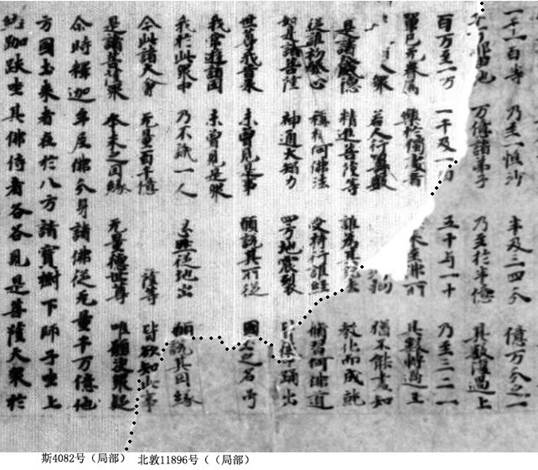 一千一百等 乃至一恒沙 半及三四分 億万分之一
由他 万億諸弟子 乃至於半億 其數復過上
百万至一万 一千及一百 五十与一十 乃至三二一
單己无眷属 樂於獨處者 來至佛所 其數轉過上
大衆 若人行籌數 劫 猶不能盡知
是諸大威德 精進菩薩等 誰為其說法 教化而成就
從誰初發心 稱揚何佛法 受持行誰經 脩習何佛道
如是諸菩薩 神通大智力 四方地震裂 皆從中踊出
世尊我昔來 未曾見是事 願說其所從 國土之名号
我常遊諸國 未曾見是衆
我於此衆中 乃不識一人 忽然從地出 願說其因緣
今此諸大會 无量百千億 薩等 皆欲知此事
是諸菩薩衆 本末之因緣 无量德世尊 唯願決衆疑
尒時釋迦牟尼佛分身諸佛從无量千万億他
方國土來者在於八方諸寶樹下師子坐上
結跏趺坐其佛侍者各各見是菩薩大衆於
斯4082号（局部） 北敦11896号（（局部）